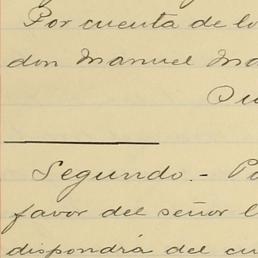 Por cuenta de lo
don Manuel Ma
Segundo.- Po
favor del señor
dispondrá del